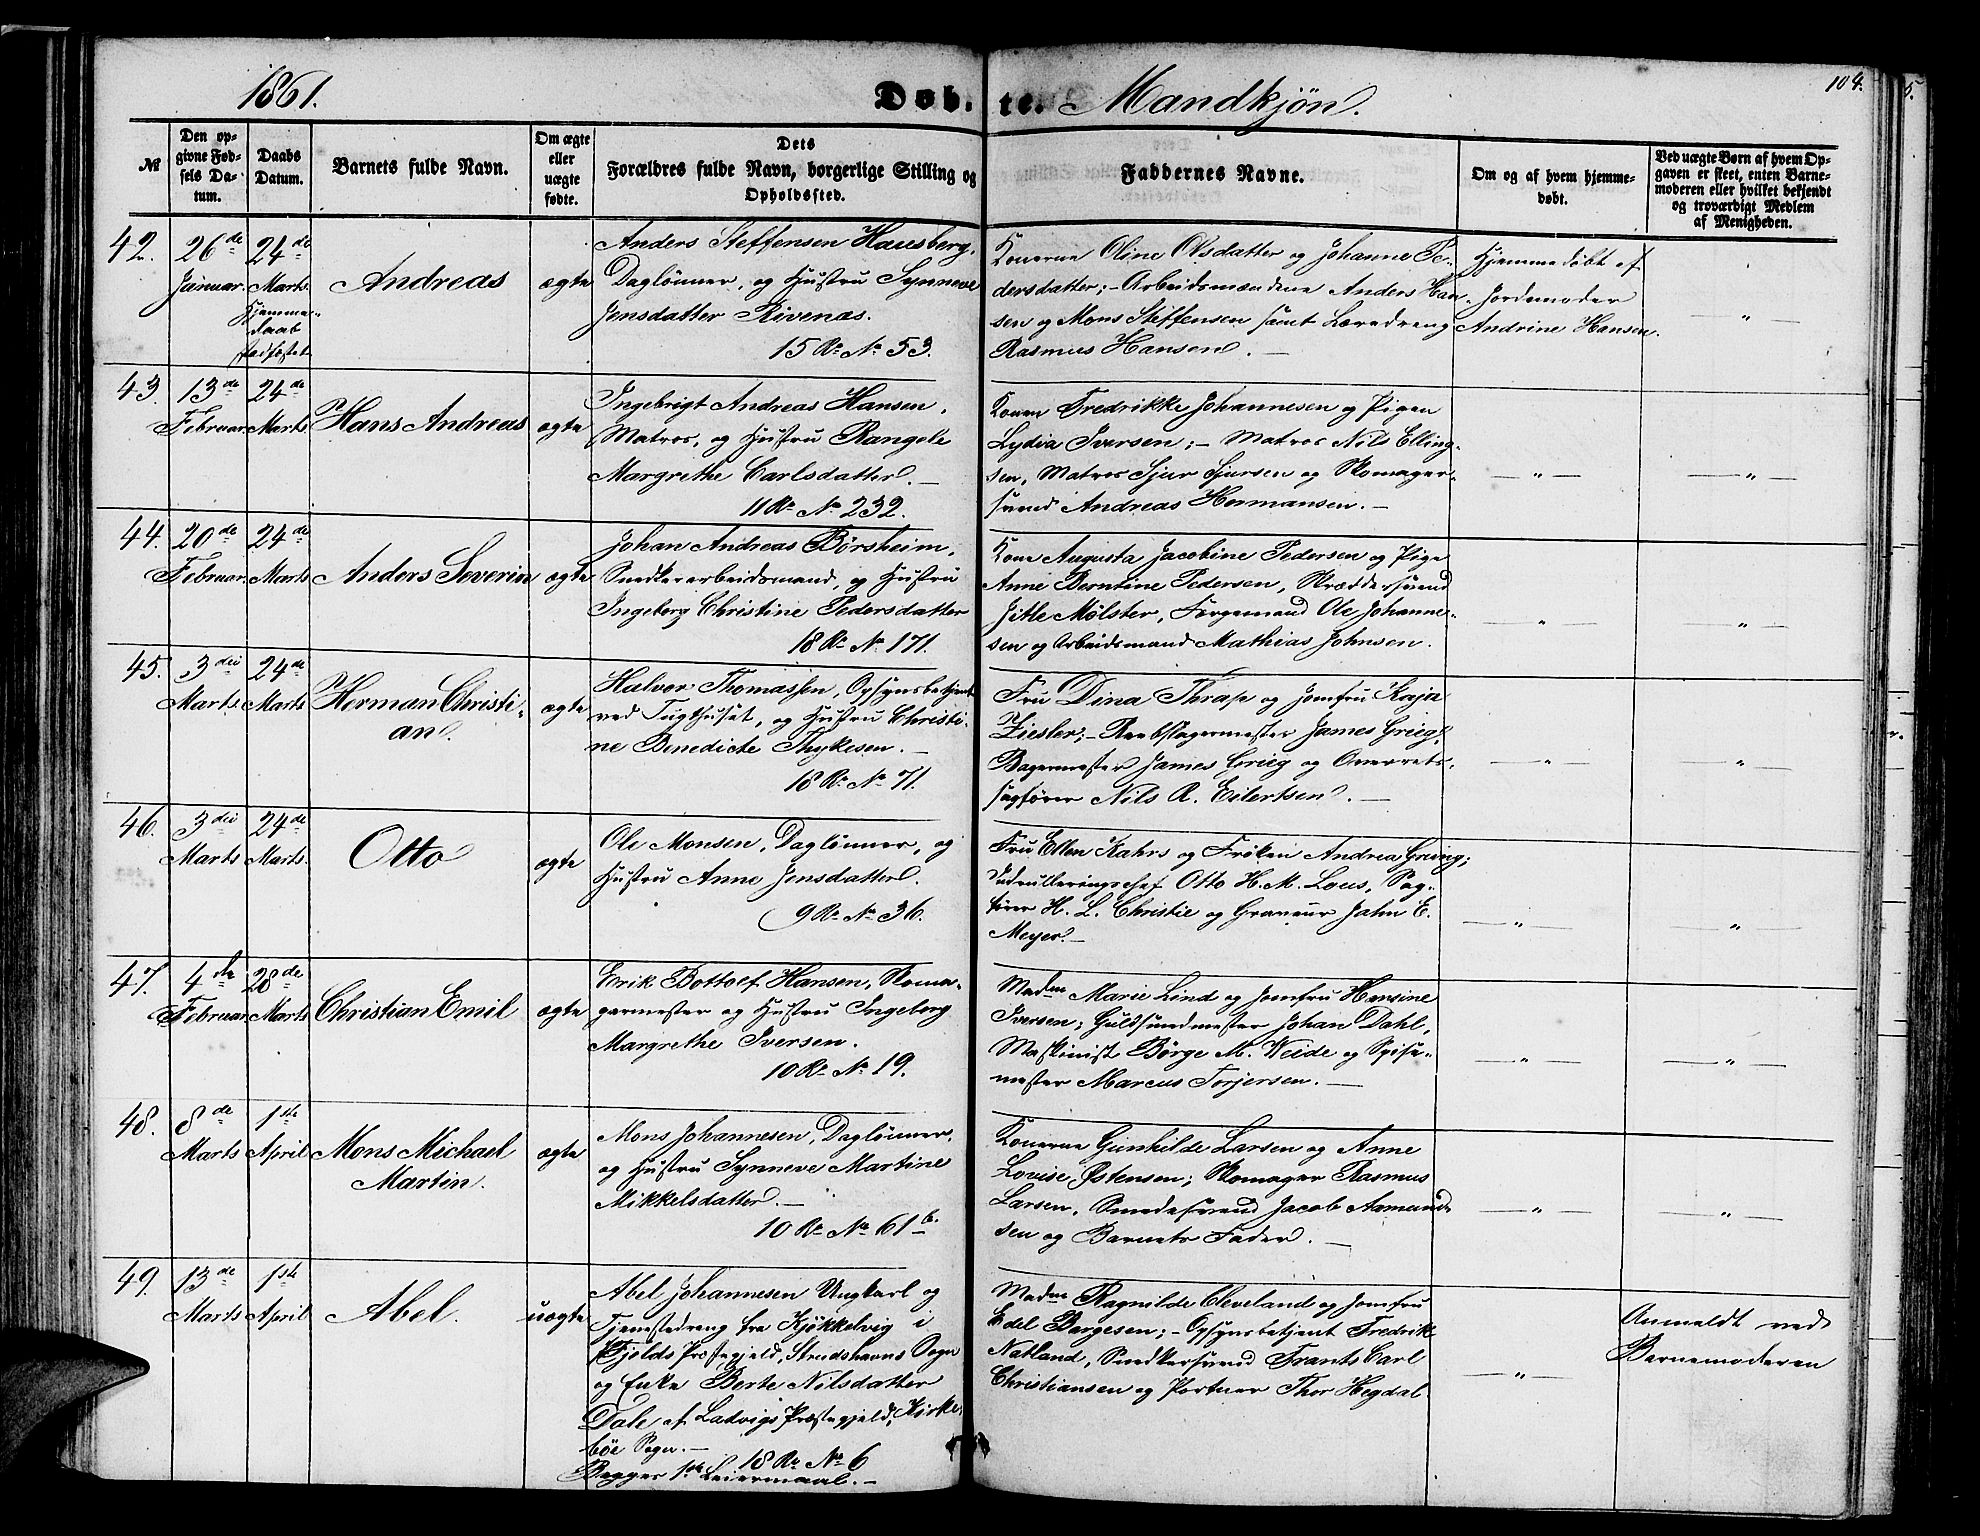 1861.
Døb.
te. Mandkjön.
104.
5.
№
Den op-
givne Fød-
sels Da-
tum.
Daabs
Datum.
Barnets fulde Navn.
Om ægte
eller
uægte
fødte.
Dets
Forældres fulde Navn, borgerlige Stilling og
Opholdssted.
Faddernes Navne.
Om og af hvem hjemme-
døbt.
Ved uægte Børn af hvem Op-
gaven er skeet, enten Barne-
moderen eller hvilket bekjendt
og troværdigt Medlem
af Menigheden.
42.
26de
Januar.
24de
Marts.
Hjemme-
daab
stadfæstet
Andreas
ægte
Anders Steffensen Hauesberg,
Daglönner, og Hustru Synneve
Jensdatter Rivenæs.
15 Re No 53.
Konerne Oline Olsdatter og Johanne Pe-
dersdatter; - Arbeidsmændene Anders Han-
sen og Mons Steffensen samt Læredreng
Rasmus Hansen. —
Hjemmedöbt af
Jordemoder
Andrine Hansen.
— " —
43.
13de
Februar.
24de
Marts
Hans Andreas
ægte
Ingebrigt Andreas Hansen,
Matros, og Hustru Rangele
Margrethe Carlsdatter. —
11 Re No 232.
Konen Fredrikke Johannesen og Pigen
Lydia Iversen; - Matros Nils Elling-
sen, Matros Sjur Sjursen og Skomager-
svend Andreas Hermansen. -
— " —
— " —
44.
20de
Februar.
24de
Marts
Anders Severin
ægte
Johan Andreas Börsheim,
Snedkerarbeidsmand, og Hustru
Ingeborg Christine Pedersdatter
18 Re No 171.
Kone Augusta Jacobine Pedersen og Pige
Anne Berntine Pedersen, Skræddersvend
Jitle Mølster, Færgemand Ole Johanne-
sen og Arbeidsmand Mathias Johnsen.
— " —
— " —
45.
3die
Marts.
24de
Marts
Herman Christi-
an.
ægte
Halvor Thomassen, Opsynsbetjent
ved Tugthuset, og Hustru Christi-
ne Benedicte Thykesen. —
18 Re No 71.
Fru Dina Thrap og Jomfru Kaja
Ziesler; - Reebslagermester James Grieg,
Bagermester James Grieg og Overrets-
sagförer Nils R. Eilertsen. —
— " —
— " —
46.
3die
Marts
24de
Marts.
Otto
ægte
Ole Monsen, Daglönner, og
Hustru Anne Jensdatter.
9 Re No 36.
Fru Ellen Kahrs og Fröken Andrea Greving;
Indrulleringschef Otto H. M. Lous, Sag-
förer H. L. Christie og Graveur Jahn E.
Meyer. —
— " —
— " —
47.
4de
Februar.
28de
Marts
Christian Emil
ægte
Erik Bottolf Hansen, Skoma-
germester og Hustru Ingeborg
Margrethe Iversen.
10 Re No 19.
Madme Marie Lind og Jomfru Hansine
Iversen; Guldsmedmester Johan Dahl,
Maskinist Börge M. Weide og Spise-
mester Marcus Torjersen. —
— " —
— " —
48.
8de
Marts
1ste
April
Mons Michael
Martin.
ægte
Mons Johannesen, Daglönner,
og Hustru Synneve Martine
Mikkelsdatter. —
10 Re No 61 b.
Konerne Gunhilde Larsen og Anne
Lovise Østensen; Skomager Rasmus
Larsen, Smedesvend Jacob Aamund-
sen og Barnets Fader. —
— " —
— " —
49.
13de
Marts
1ste
April
Abel.
uægte
Abel Johannesen Ungkarl og
Tjenestedreng fra Kjøkkelvig i
Fjelds Præstegjeld, Strudshavns Sogn
og Enke Berte Nilsdatter
Dale af Ladvigs Præstegjeld, Kirke-
böe Sogn. —
18 Re No 6
Begges 1ste Leiermaal. —
Madme Ragnilde Cleveland og Jomfru
Edel Børgesen; - Opsynsbetjent Fredrik
Natland, Snedkersvend Frants Carl
Christiansen og Portner Thor Hegdal
— " —
Anmeldt ved
Barnemoderen